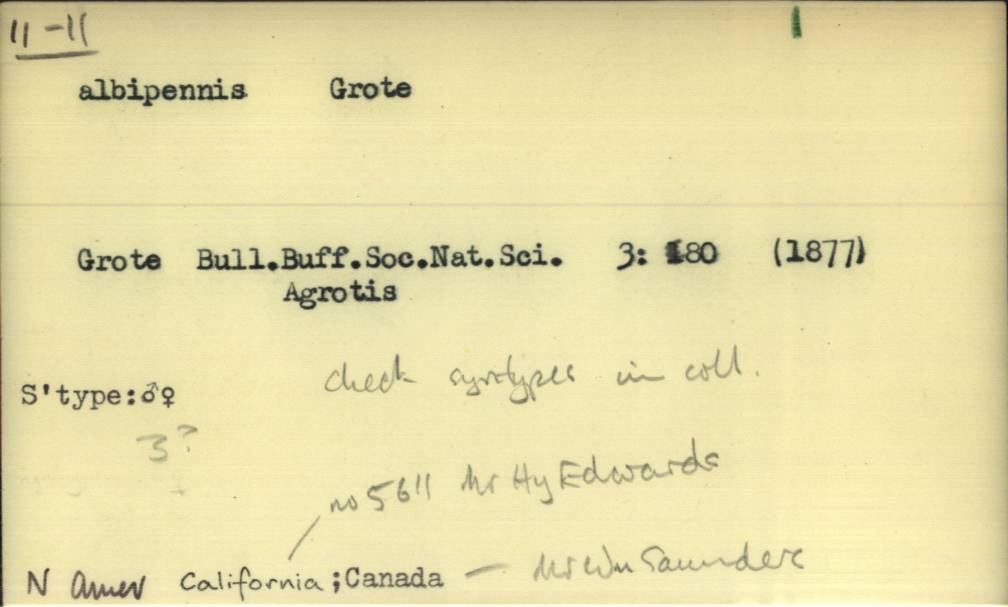 11-11
albipennis Grote
Grote Bull.Buff.Soc.Nat.Sci. 3: 80 (1877)
Agrotis
check syntypes in coll.
S'type:♂♀
3?
no 5611 Mr Hy Edwards
N Amer California ;Canada — Mr Wm Saunders